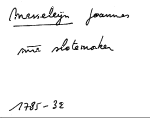 Messeleijn Joannes
mr slotemaker
1785-32